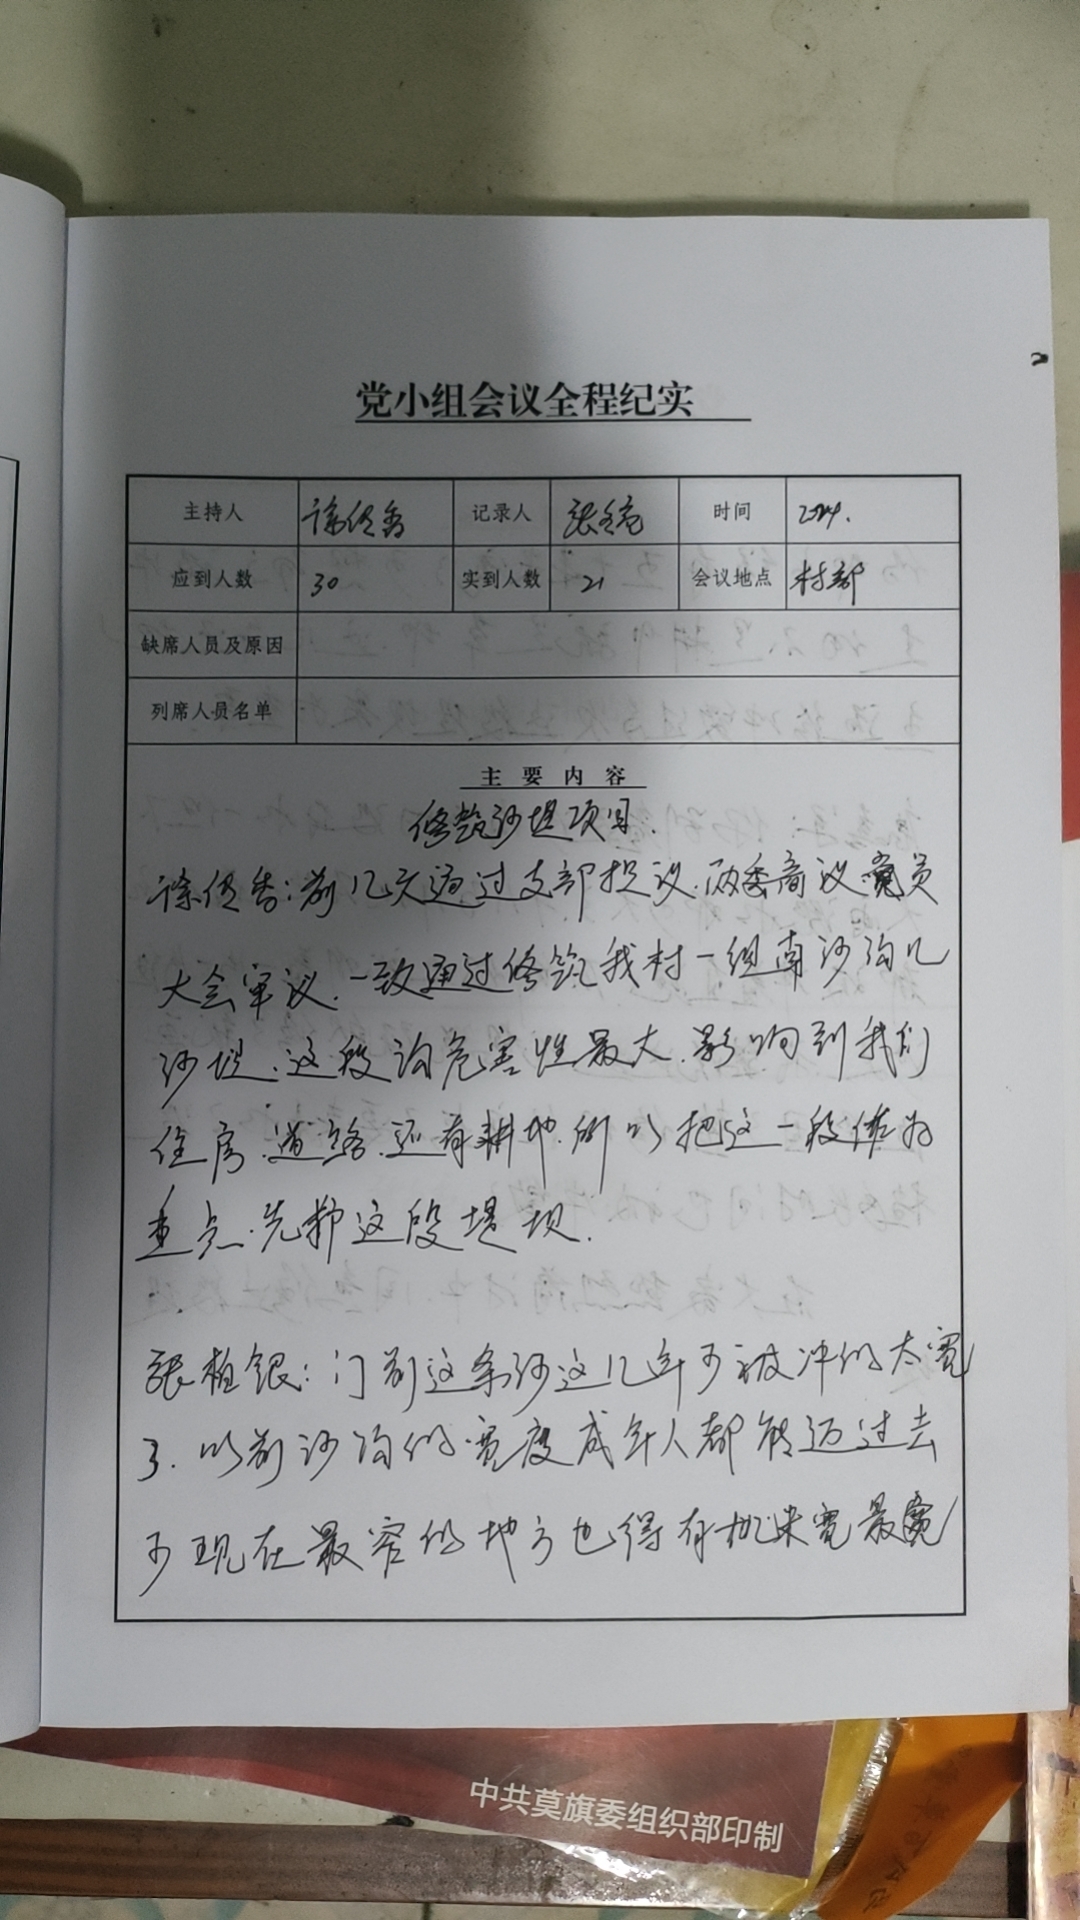 党小组会议全程纪实
主持人 徐传香 记录人 张 时间 2024.
应到人数 30 实到人数 21 会议地点 村部
缺席人员及原因
列席人员名单
主要内容
修筑沙堤项目.
徐传香：前几天通过支部提议.两委商议.党员
大会审议.一致通过修筑我村一组南沙沟儿
沙堤.这段沟危害性最大.影响到我们
住房.道路.还有耕地.所以把这一段作为
重点.先护这段堤坝.
张植银：门前这条沙这几年可被冲的太宽
了.以前沙沟的宽度成年人都能迈过去
可现在最窄的地方也得有米宽最宽
中共莫旗委组织部印制